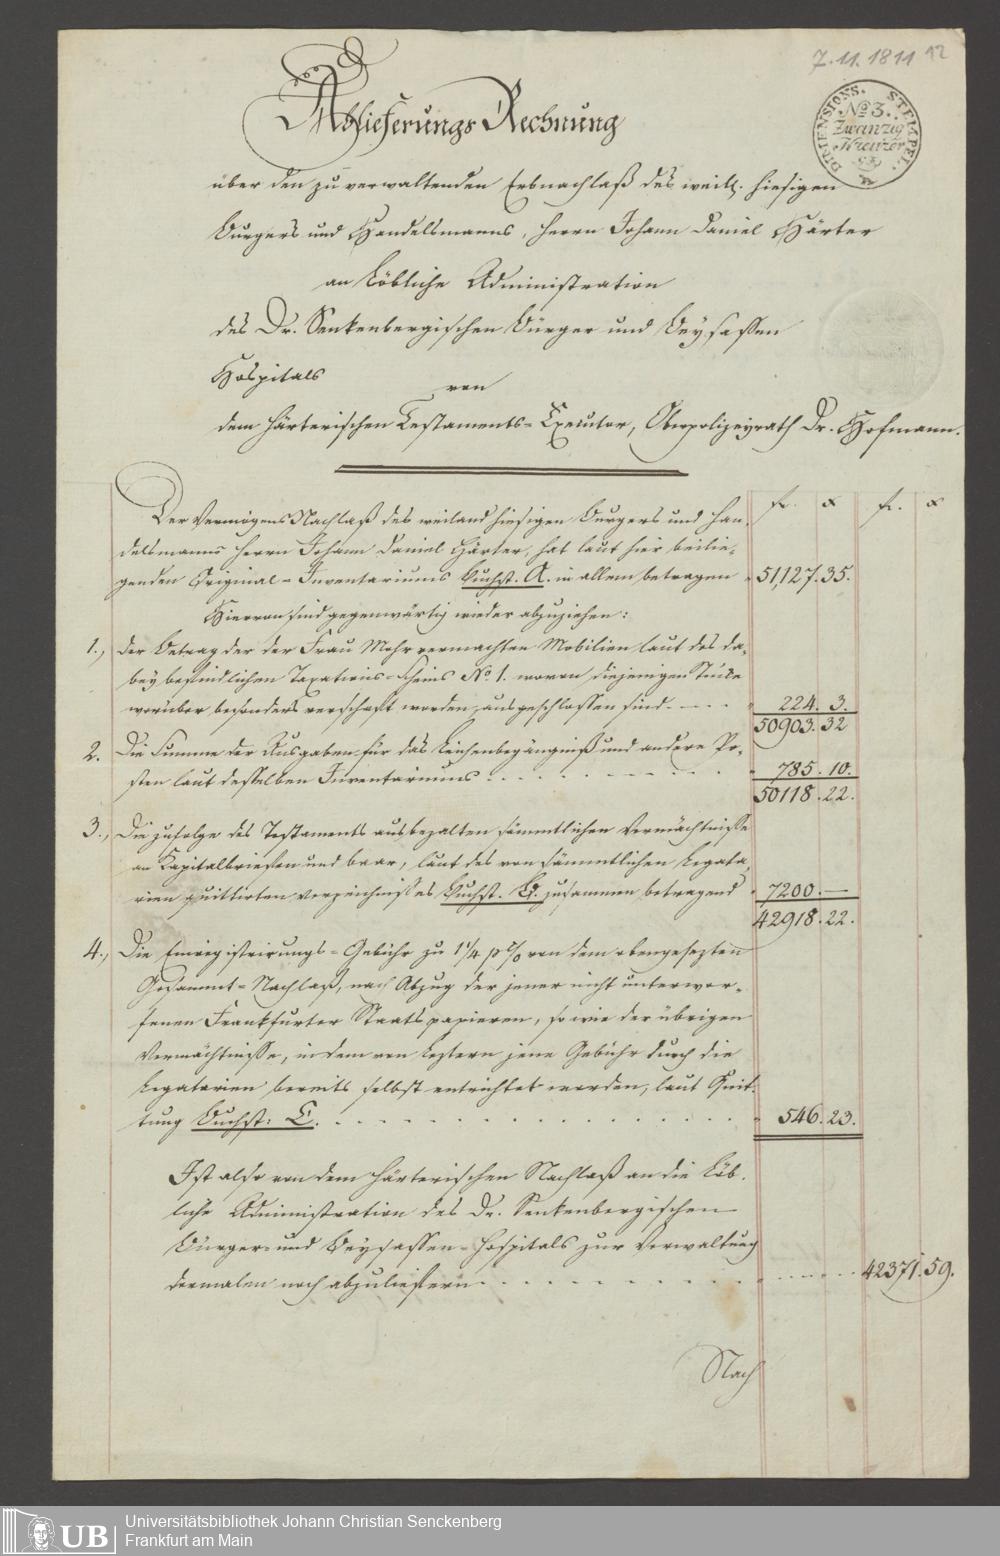 7.11.1811 12
DIMENSIONS. STEMPEL.
No 3.
Zwanzig
Kreuzer
Ablieferungs Rechnung
über den zu verwaltenden Erbnachlaß des weil. hiesigen
Burgers und Handelsmanns, Herrn Johann Daniel Härter
an Löbliche Administration
des Dr. Senkenbergischen Bürger und Beysassen
Hospitals
von
dem Härterischen Testaments-Executor, Oberpolizeyrath Dr. Hofmann.
fr. x fr. x
Der Vermögens Nachlaß des weiland hiesigen Burgers und Han-
delsmanns Herrn Johann Daniel Härter, hat laut hier beilie-
genden Original-Inventariums Buchst. A. in allem betragen 51,127. 35.
Hiervon sind gegenwärtig wieder abzuziehen:
1., Der Betrag der der Frau Mohr vermachten Mobilien laut des da-
bey befindlichen Taxations-Scheins No 1. wovon diejenigen Stücke
worüber besonders verschaft worden, ausgeschlossen sind 224. 3.
50903. 32
2. Die Summe der Ausgaben für das Leichenbegängniß und andere Po-
sten laut desselben Inventariums 785. 10.
50118. 22.
3., Die zufolge des Testaments ausbezalten sämmtlichen Vermächtnisse
an Kapitalbriefen und baar, laut des von sämmtlichen Legata-
rien quittirten Verzeichnisses Buchst. B. zusammen betragend 7200. —
42918. 22.
4., Die Einregistrirungs-Gebühr zu 1 1/4 p% von dem obengesezten
Gesammt-Nachlaß, nach Abzug der jener nicht unterwor-
fenen Frankfurter Staatspapieren, so wie der übrigen
Vermächtnisse, indem von leztern jene Gebühr durch die
Legatarien bereits selbst entrichtet worden, laut Quit-
tung Buchst: C. 546. 23.
Ist also von dem Härterischen Nachlaß an die Löb-
liche Administration des Dr. Senkenbergischen
Bürger- und Beysassen-Hospitals zur Verwaltung
dermalen noch abzuliefern 42371. 59.
Nach
UB
Universitätsbibliothek Johann Christian Senckenberg
Frankfurt am Main